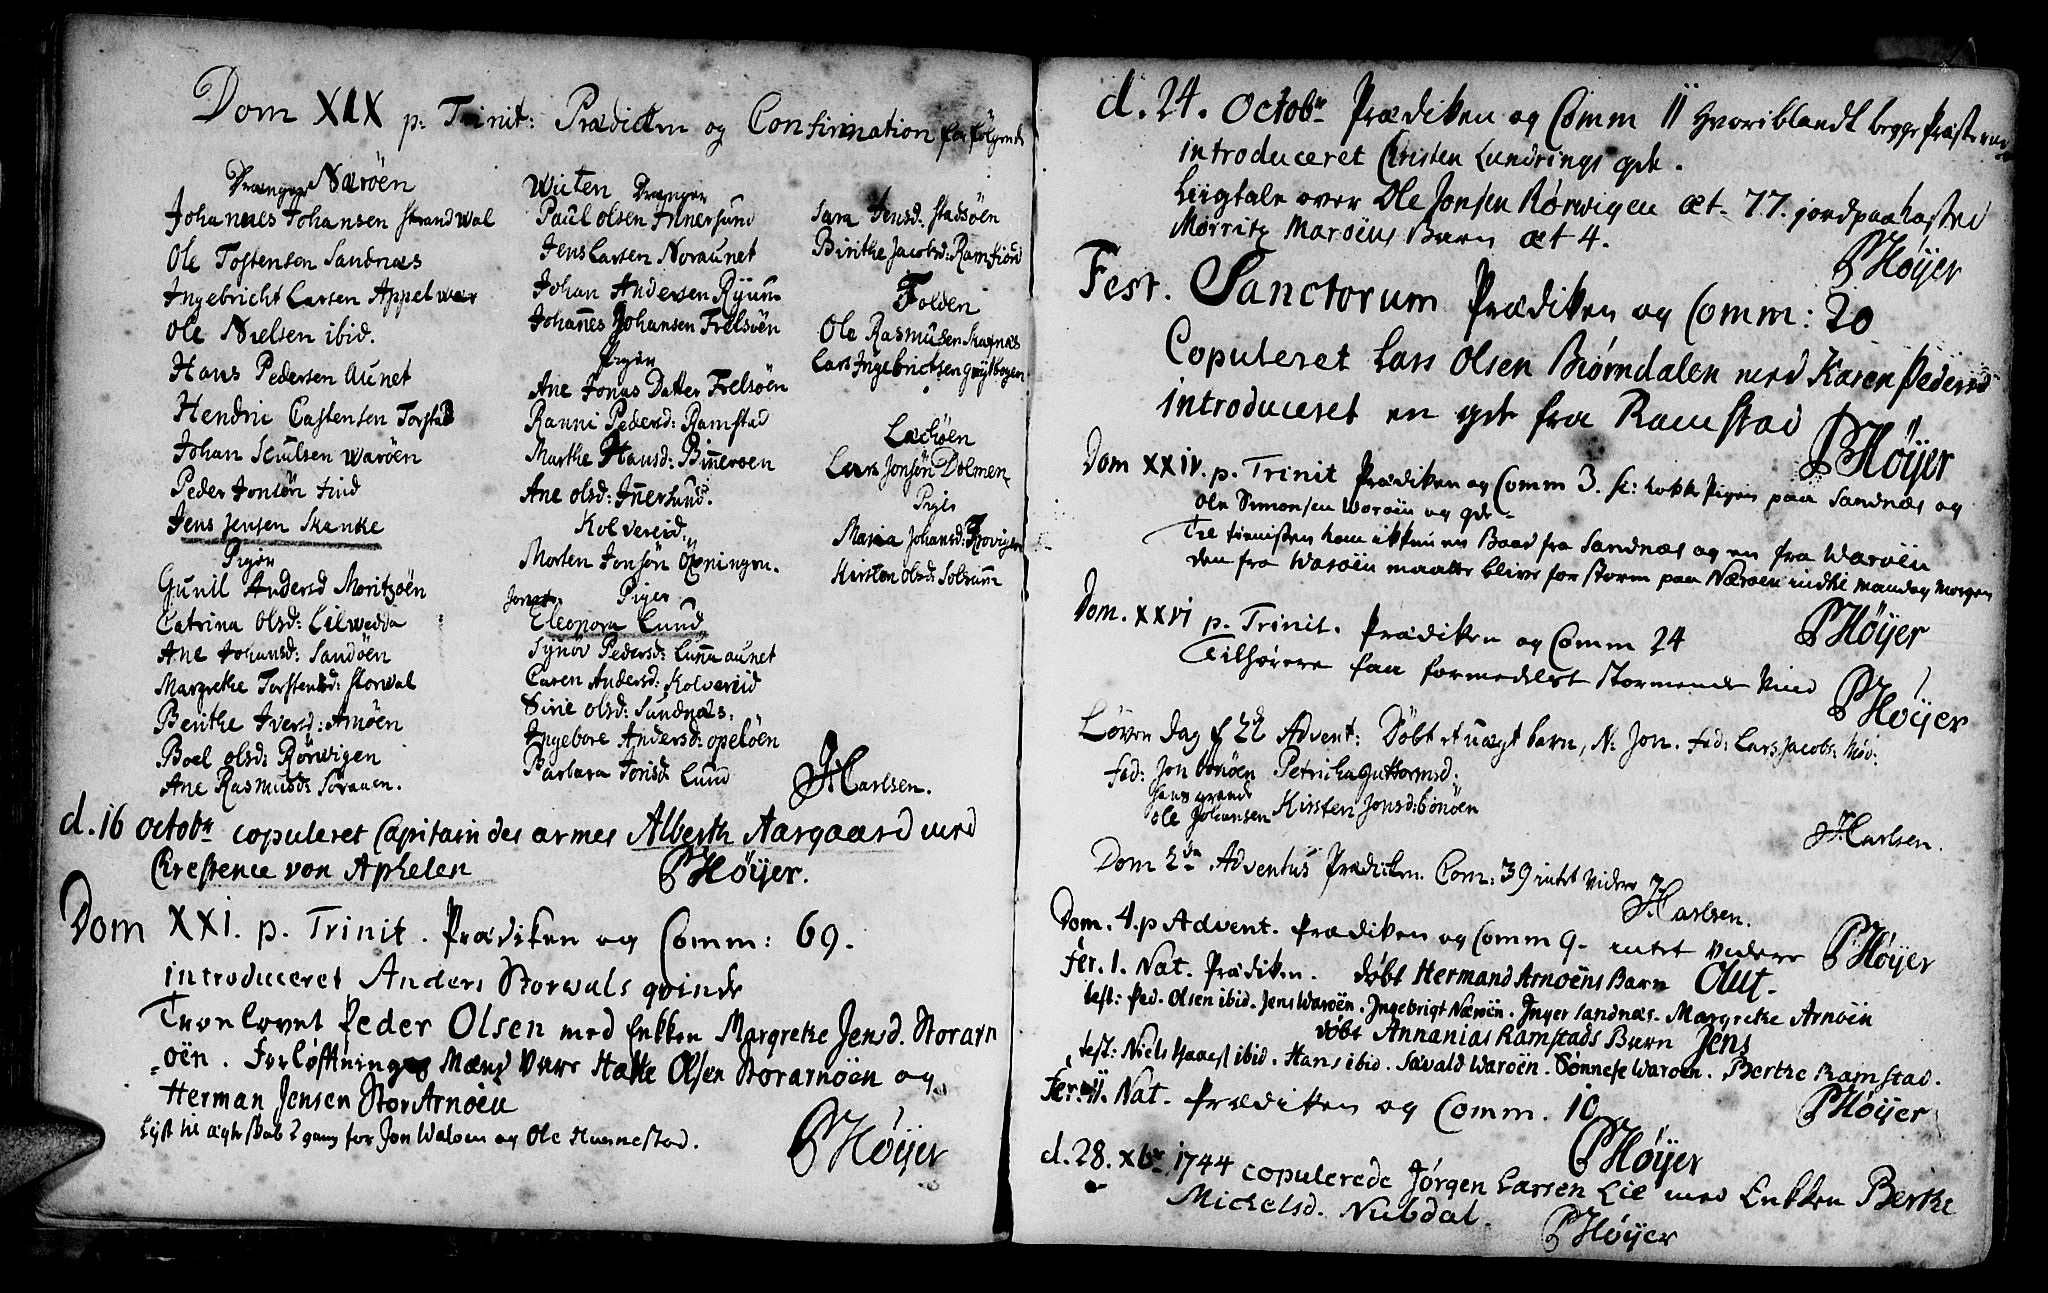 Dom XIX p. Trinit: Prædicken og Confirmation for følgende
Drænger Næröen
Johannes Johansen Strandwal
Ole Tostensen Sandnæs
Ingebricht Larsen Appelwær
Ole Nielsen ibid.
Hans Pedersen Aunet
Hendric Castensen Torstad
Johan Sculsen Waröen
Peder Jonsön Find
Jens Jensen Skanke
Pigör
Gunil Andersd Moritzöen
Catrina Olsd: Lilwedda
Ane Johansd: Sandöen
Margrete Torstensd: Storwal
Berithe Iversd: Arnöen
Boel Olsd: Rörwigen
Ane Rasmusd: Soraaen.
Wicten Drænger
Paul Olsen Innersund
Jens Larsen Noraunet
Johan Andersen Ryum
Johañes Johansen Frelsöen
Pigör
Ane Jonas Datter Frelsöen
Ranni Pedersd: Ramstad
Marthe Hansd: Biñeroen
Ane Olsd: Iñersund.
Kolvereid
Morten Jonsön Opningen.
Piger
Eleonora Lund
Synöv Pedersd: Luñaaunet
Caren Andersd: Kolvereid
Sirie Olsd: Sandnæs.
Ingebore Andersd: Opelöen
Barbara Jonsd: Lund
Sara Jensd: Stadsöen
Birithe Jacobsd: Ramfiord
Folden
Ole Rasmusen Skafnæs
Lars Ingebrictsen
Lechöen
Lars Jonsön Dolmen
Pigör
Maria Johansd:
Kirsten Olsd: Solsum
J. Carlsen.
d. 16 octobr copuleret Capitain des armes Alberth Aargaard med
Crestence von Aphelen
PHöyer.
Dom XXI. p. Trinit. Prædiken og Comm: 69.
introduceret Anders Storwals qvinde
Troelovet Peder Olsen med Enkken Margrete Jensd. Storarn
öen. Forløftnings Mænd vare Halte Olsen Storarnöen og
Herman Jensen StorArnöen
Lyst til ægteskab 2 gang for Jon Waloen og Ole Hurnestad.
PHöyer
d. 24. Octobr Prædiken og Comm 11 hvoriblandt begge Præsterne
introduceret Cristen Lundrings qde.
Liigtale over Ole Jonsen Rörwigen æt. 77. jordpaakasted
Morritz Maröens Barn æt 4.
PHöyer
Fest. Sanctorum Prædiken og Comm: 20
Copuleret Lars Olsen Biörndalen med Karen Pedersd
introduceret en qde fra Ramstad
PHöyer
Dom XXIV. p. Trinit Prædiken og Comm 3. sc: Pigen paa Sandnæs og
Ole Simonsen Waröen og qde
Til tienisten kom ikkun en Baad fra Sandnæs og en fra Waröen
den fra Waröen maatte blive for storm paa Næröen indtil mandag morgen
PHöyer
Dom. XXVI p. Trinit. Prædiken og Comm 24
Tilhörere faa formedelst stormende Vind
PHöyer
Löver Dag f 22 Advent: Döbt et uægt barn, N: Jon. Fad: Lars Jacobs: Mod:
Fad: Jon bönöen Petricha Guttormsd.
Jens grande
Ole Johansen Kirsten Jonsd: bönöen
J. Carlsen.
Dom 2da Adventus Prædicken. Com: 39 intet videre
J. Carlsen.
Dom. 4. p Advent. Prædiken og Comm 9. intet videre
PHöyer
Fer. 1. Nat. Prædiken. döbt Hermand Arnöens Barn Oluf.
test: Ped. Olsen ibid. Jens Waröen. Ingebrigt Næröen. Inger Sandnæs. Margrete Arnöen
döbt Annanias Ramstads Barn Jens
test: Niels Haaest ibid. Hans ibid. Savald Waröen. Sönnefe Waröen. Berthe Ramstad.
PHöyer
Fer. II. Nat. Prædiken og Comm. 10
PHöyer
d. 28. Xbr 1744 copulerede Jörgen Larsen Lie med Enkken Berthe
Michelsd. Nubdal.
PHöyer